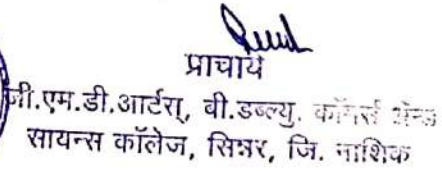 प्राचार्य
जी.एम.डी.आर्टस्, बी.डब्ल्यु. कॉमर्स अॅन्ड
सायन्स कॉलेज, सिन्नर, जि. नाशिक